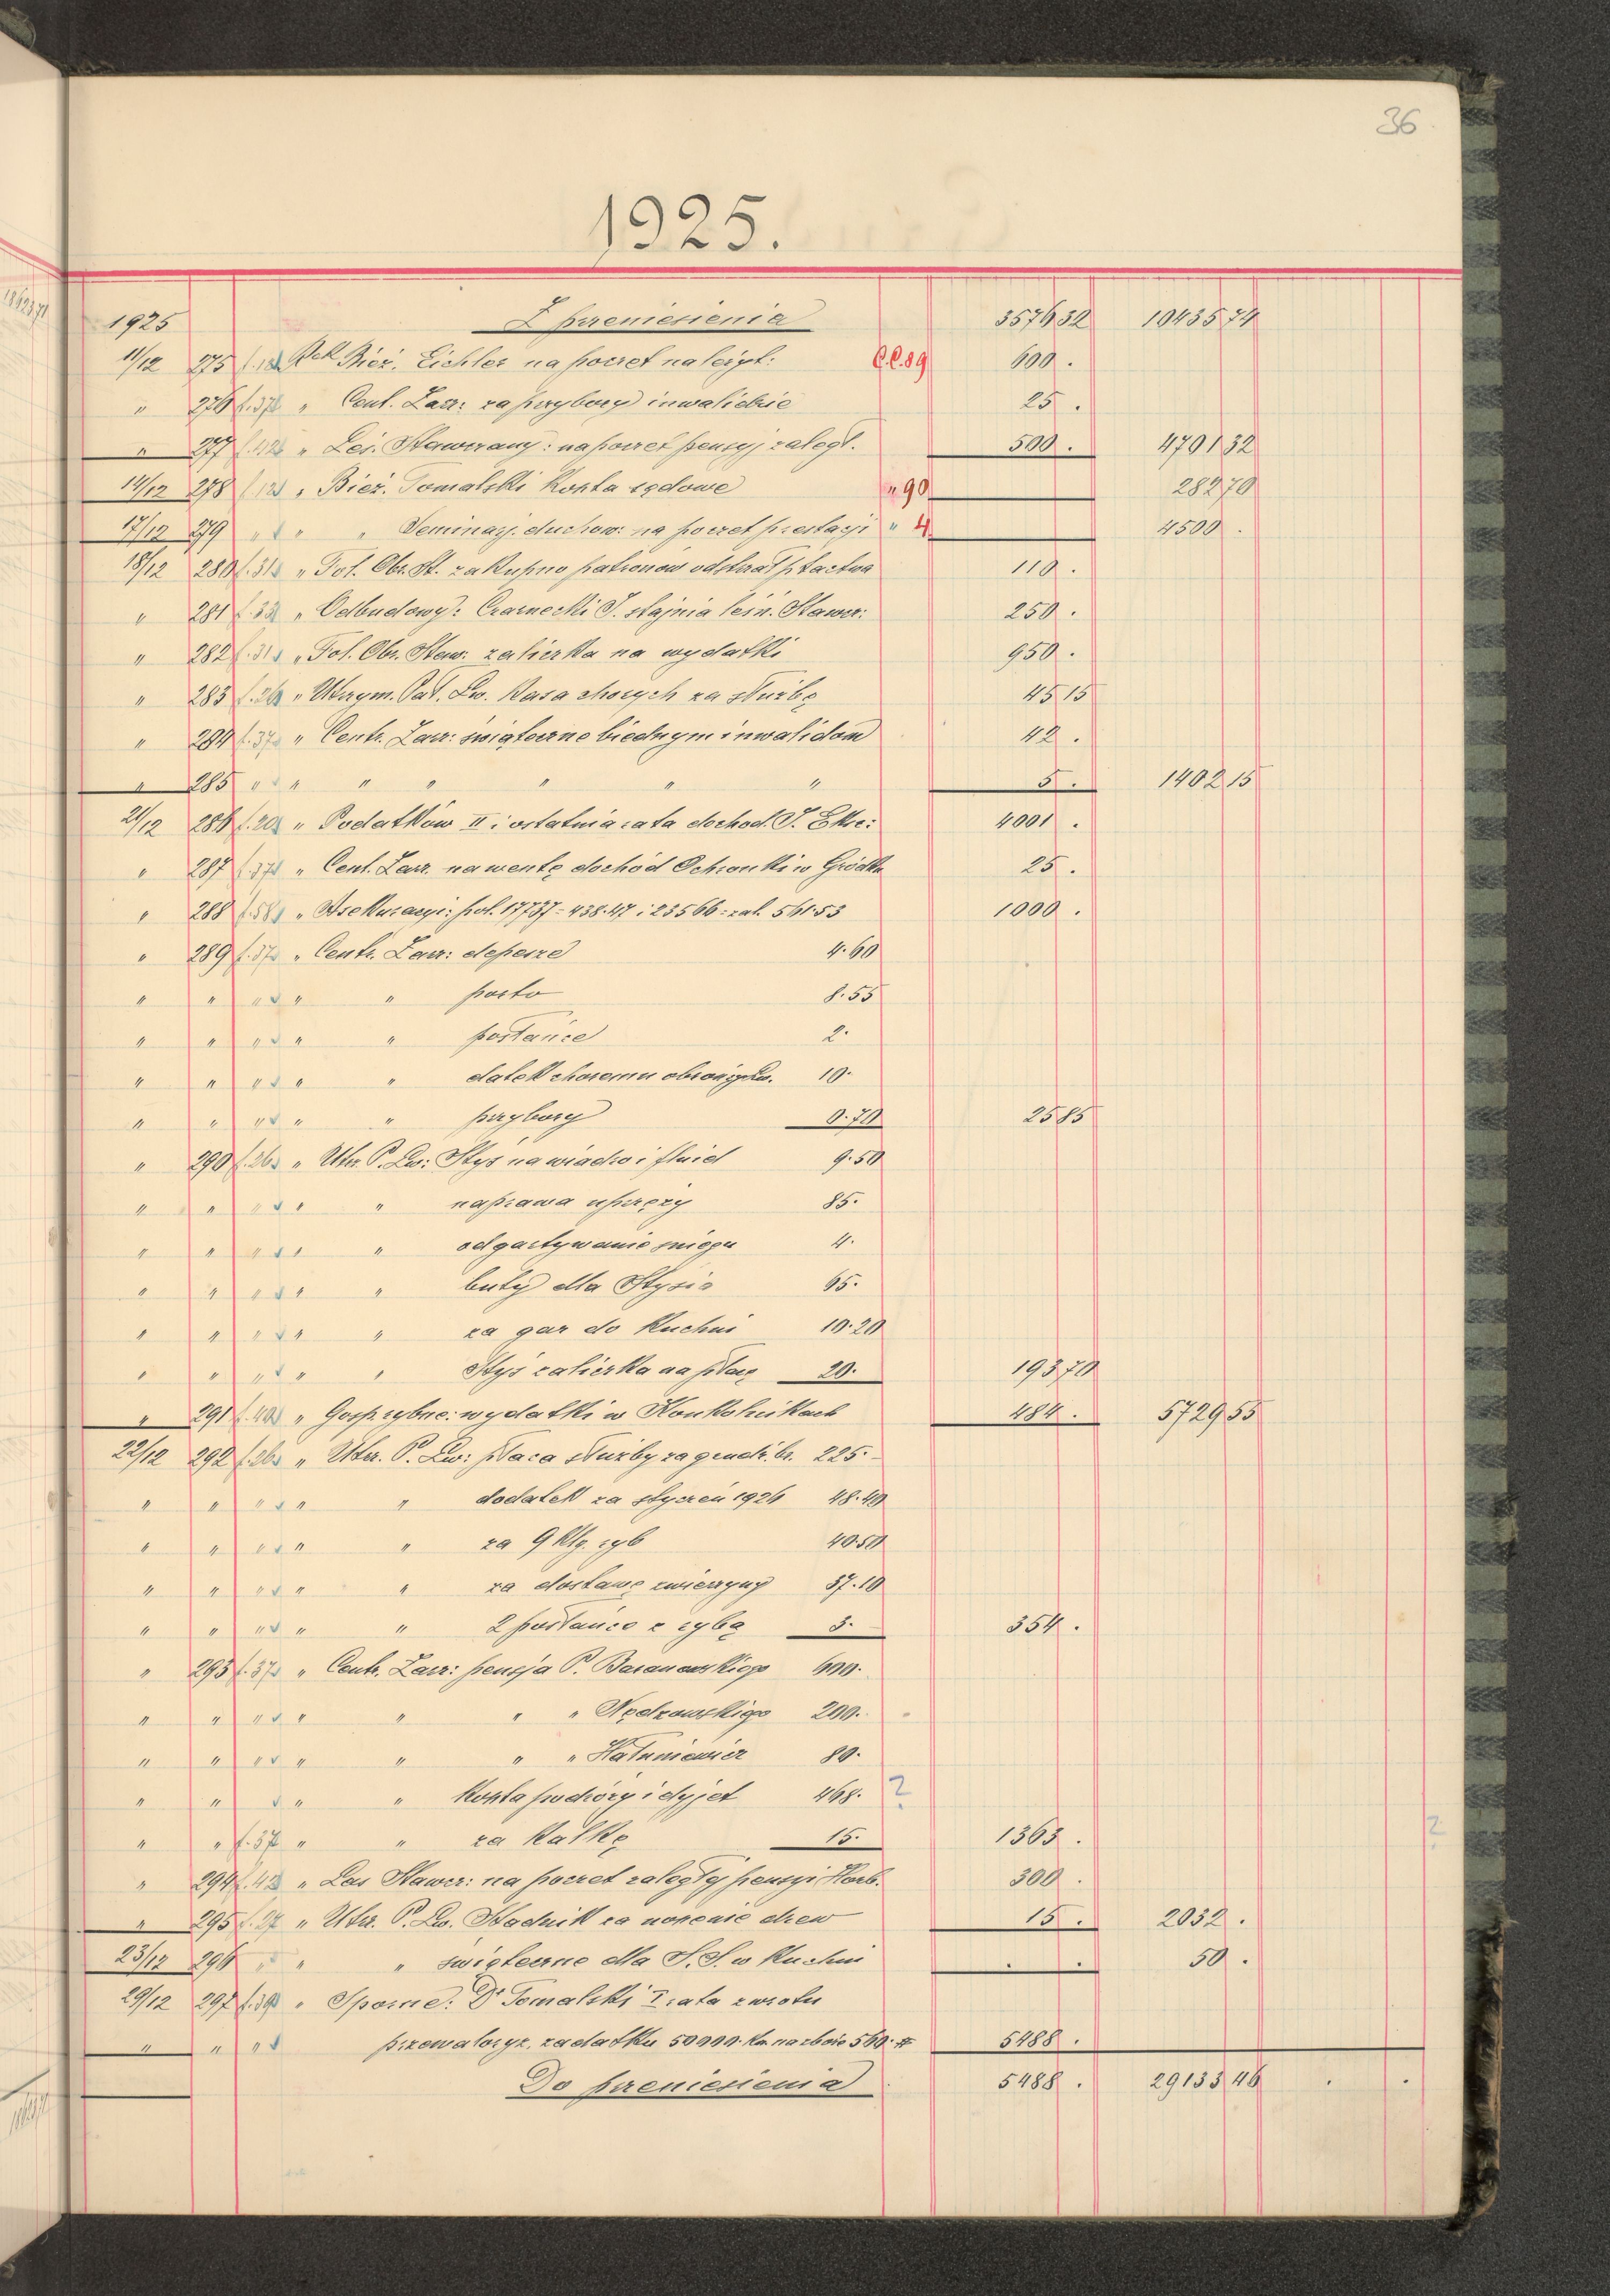 36.
1925.
1925 Z przeniesienia 3576 32 10435 74
11/12 275 f. Rck Bież. Eichler na poczet należyt: C.C.89 600 .
" 276 f.37 " Cent. Zarz: za przybory inwalidzie 25 .
" 277 f.42 " Leś. Stawczany: na poczet pensyj zaległ. 500 . 4701 32
14/12 278 f.12 " Bież. Tomalski koszta sądowe " 90 282 70
17/12 279 " " " " Seminarj. duchow: na poczet prestacyi " 4 4500 .
18/12 280 f.31 " Fol. Obr. St. zakupno patronów odstrzał ptactwa 110 .
" 281 f.33 " Odbudowy: Czarnecki J. stajnia leśn. Stawcz: 250 .
" 282 f.31 " Fol. Obr. Staw. zaliczka na wydatki 950 .
" 283 f.26 " Utrzym. Pał. Lw. Kasa chorych za służbę 45 15
" 284 f.37 " Centr. Zarz: świąteczne biednym inwalidom 42 .
" 285 " " " " " " " " 5 . 1402 15
21/12 286 f.20 " Podatków II i ostatnia rata dochod. J. Eksc: 4001 .
" 287 f.37 " Cent. Zarz. na wentę dochód Ochronki w Gródku 25 .
" 288 f.58 " Asekuracyi: pol. 17737 = 438.47 i 23566 = zal. 561.53 1000 .
" 289 f.37 " Centr. Zarz: depesze 4.60
" " " " " " porto 8.55
" " " " " " posłańce 2.
" " " " " " datek choremu obrońcy Lw. 10.
" " " " " " przybory 0.70 25 85
" 290 f.26 " Utrz. P. Lw: Styś na wiadro i fluid 9.50
" " " " " " naprawa uprzęży 85.
" " " " " " odgartywanie śniegu 4.
" " " " " " buty dla Stysia 65.
" " " " " " za gaz do kuchni 10.20
" " " " " " Styś zaliczka na płacę 20. 193 70
" 291 f.40 " Gosp. rybne: wydatki w Konkolnikach 484 . 5729 55
22/12 292 f.26 " Utrz. P. Lw: płaca służby za grudz. br. 225.
" " " " " " dodatek za styczeń 1926 48.40
" " " " " " za 9 klg. ryb 40.50
" " " " " " za dostawę zwierzyny 37.10
" " " " " " 2 posłańce z rybą 3. 354 .
" 293 f.37 " Centr. Zarz: pensja P. Baranowskiego 600.
" " " " " " " " Nędzowskiego 200.
" " " " " " " " Hatuniewicz 80.
" " " " " koszta podróży i dyjet 468. ?
" " f.37 " " za kalkę 15. 1363 . ?
" 294 f.42 " Las Stawcz: na poczet zaległej pensyi Horb. 300 .
" 295 f.27 " Utrz. P. Lw. Stadnik za noszenie drzew 15 . 2032 .
23/12 296 " " " " świąteczne dla S.S. w kuchni . . 50 .
29/12 297 f.39 " Sporne: Dr Tomalski I rata zwrotu
" " " " przewaloryz. zadatku 50000. kor. na zboże 560. # 5488 .
Do przeniesienia 5488 . 29133 46 . .